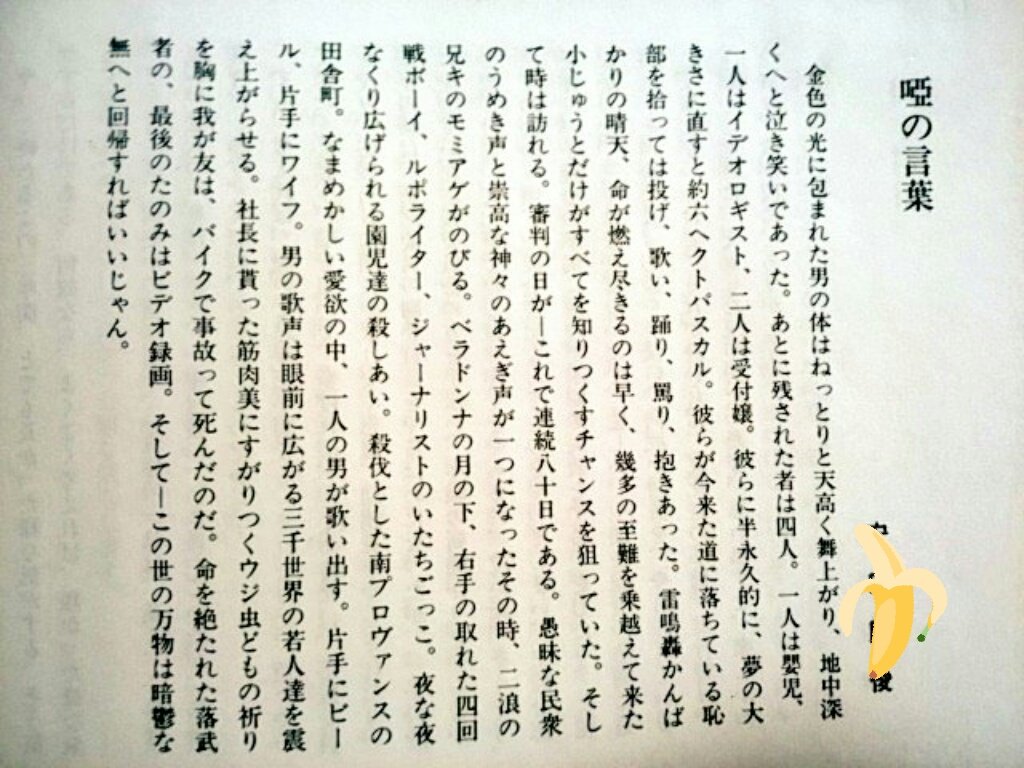 啞の言葉
俊
金色の光に包まれた男の体はねっとりと天高く舞上がり、地中深
くへと泣き笑いであった。あとに残された者は四人。一人は嬰児、
一人はイデオロギスト、二人は受付嬢。彼らに半永久的に、夢の大
きさに直すと約六ヘクトパスカル。彼らが今来た道に落ちている恥
部を拾っては投げ、歌い、踊り、罵り、抱きあった。雷鳴轟かんば
かりの晴天、命が燃え尽きるのは早く、幾多の至難を乗越えて来た
小じゅうとだけがすべてを知りつくすチャンスを狙っていた。そし
て時は訪れる。審判の日が—これで連続八十日である。愚昧な民衆
のうめき声と崇高な神々のあえぎ声が一つになったその時、二浪の
兄キのモミアゲがのびる。ベラドンナの月の下、右手の取れた四回
戦ボーイ、ルポライター、ジャーナリストのいたちごっこ。夜な夜
なくり広げられる園児達の殺しあい。殺伐とした南プロヴァンスの
田舎町。なまめかしい愛欲の中、一人の男が歌い出す。片手にビー
ル、片手にワイフ。男の歌声は眼前に広がる三千世界の若人達を震
え上がらせる。社長に貰った筋肉美にすがりつくウジ虫どもの祈り
を胸に我が友は、バイクで事故って死んだのだ。命を絶たれた落武
者の、最後のたのみはビデオ録画。そして—この世の万物は暗鬱な
無へと回帰すればいいじゃん。